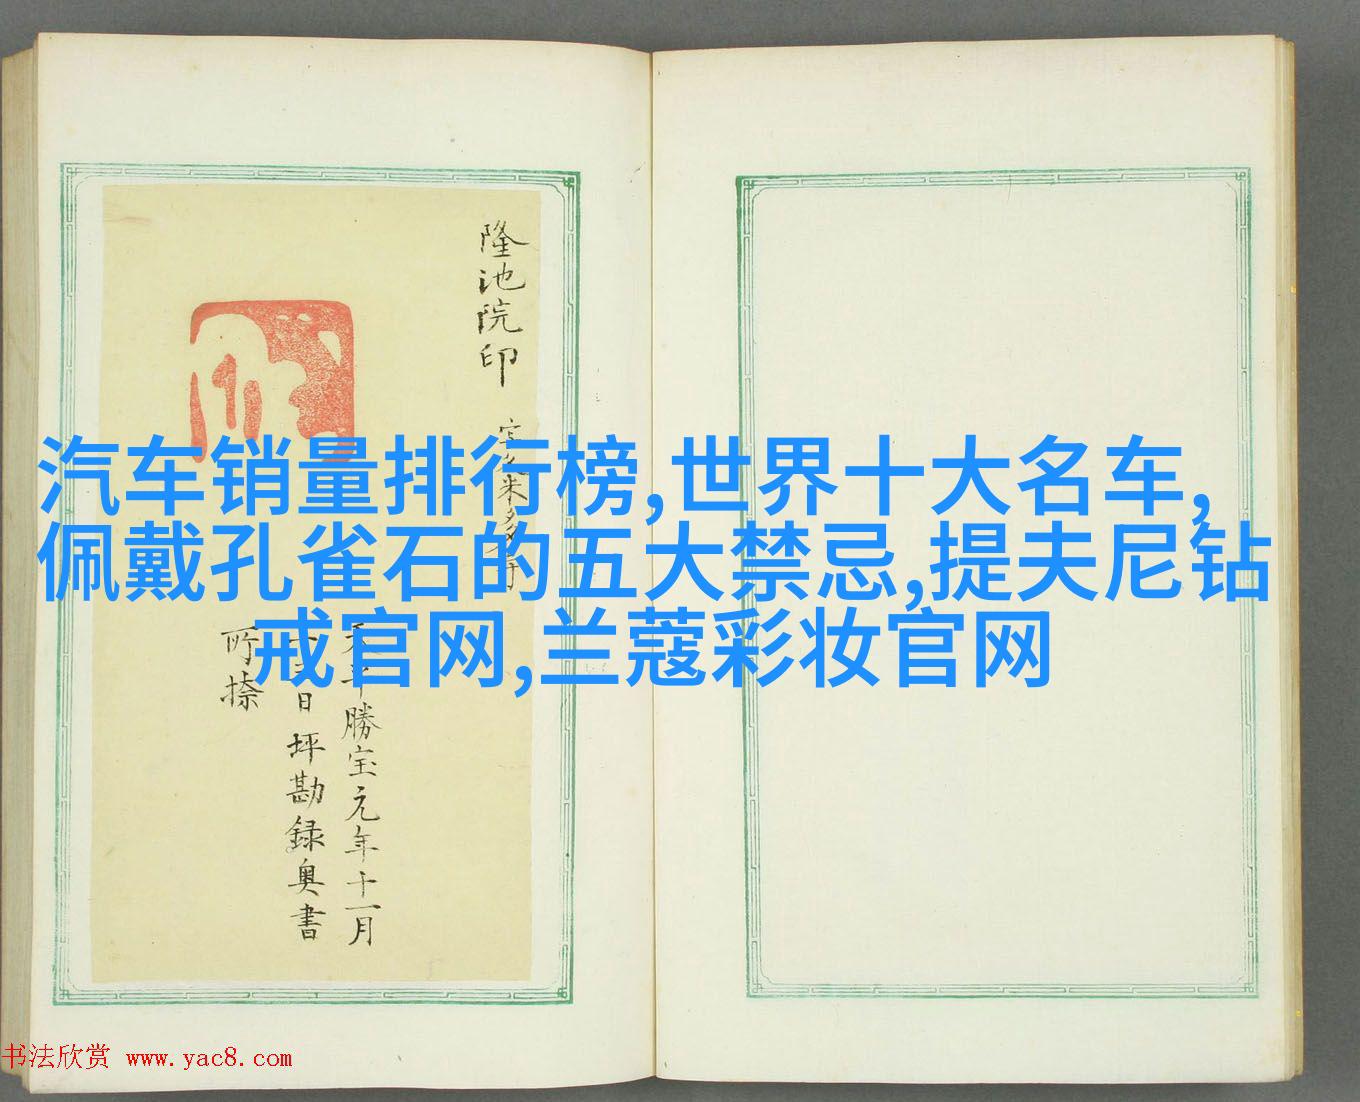 隆池院印
天平勝宝元年十一月
日坪勘録奥書
所捺
汽车销量排行榜,世界十大名车,
佩戴孔雀石的五大禁忌,提夫尼钻
戒官网,兰蔻彩妆官网
书法欣赏 www.yac8.com